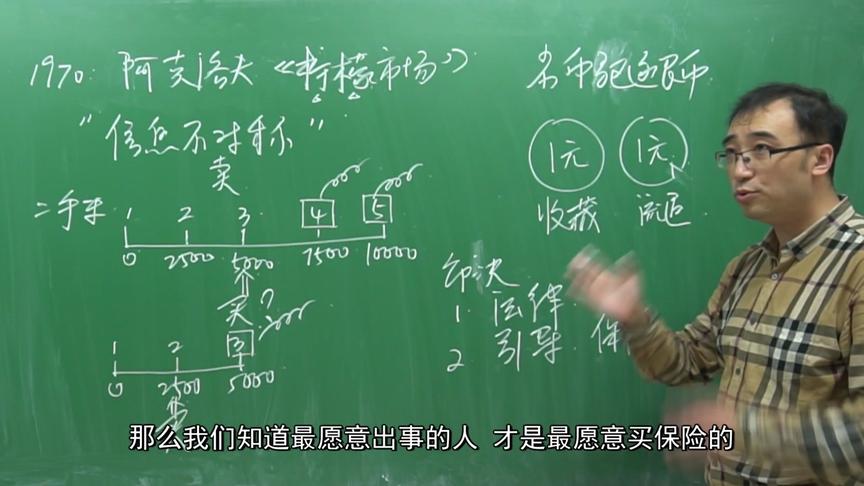 1970 阿克洛夫《柠檬市场》
"信息不对称"
卖
二手车 1 2 3 4 5
0 2500 5000 7500 10000
买?
1 2 3
0 2500 5000
劣币驱逐良币
1元 1元
收藏 流通
解决
1. 法律
2. 引导. 保
那么我们知道最愿意出事的人 才是最愿意买保险的